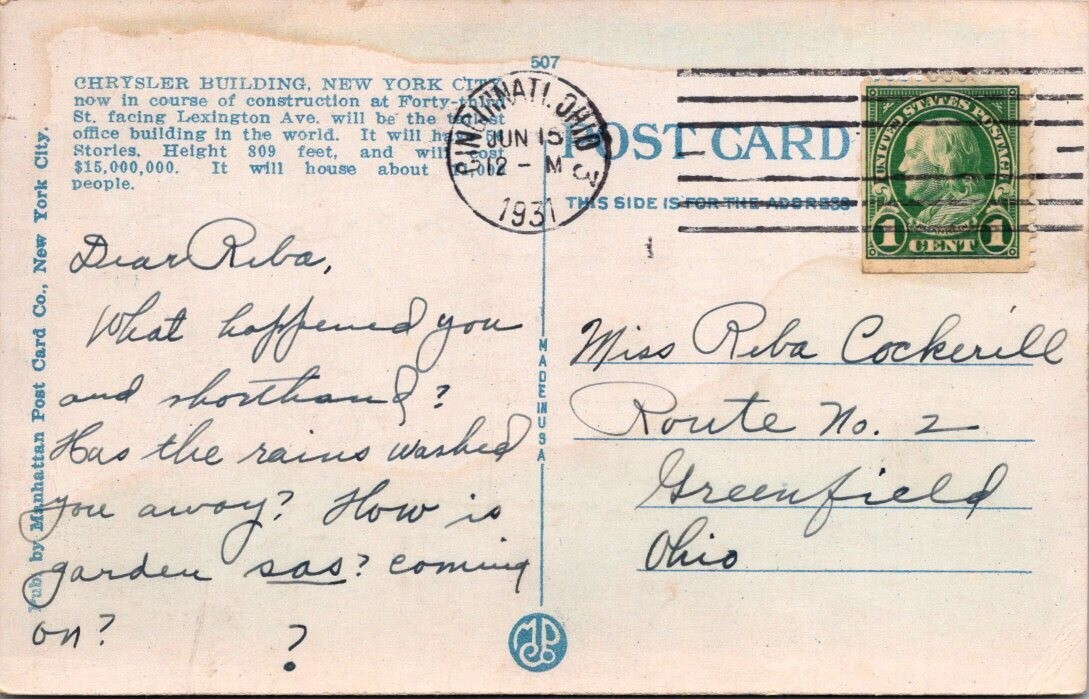 507
CHRYSLER BUILDING, NEW YORK CITY
now in course of construction at Forty-third
St. facing Lexington Ave. will be the
office building in the world. It will
Stories. Height 809 feet, and will cost
$15,000,000. It will house about
people.
CINCINNATI, OHIO
JUN 15
12 - M
1931
3
POST CARD
THIS SIDE IS FOR THE ADDRESS
UNITED STATES POSTAGE
1 CENT 1
Dear Reba,
What happened you
and shorthand?
Has the rains washed
you away? How is
garden sas? coming
on?
?
Miss Reba Cockerill
Route No. 2
Greenfield
Ohio
Pub. by Manhattan Post Card Co., New York City.
MADE IN USA